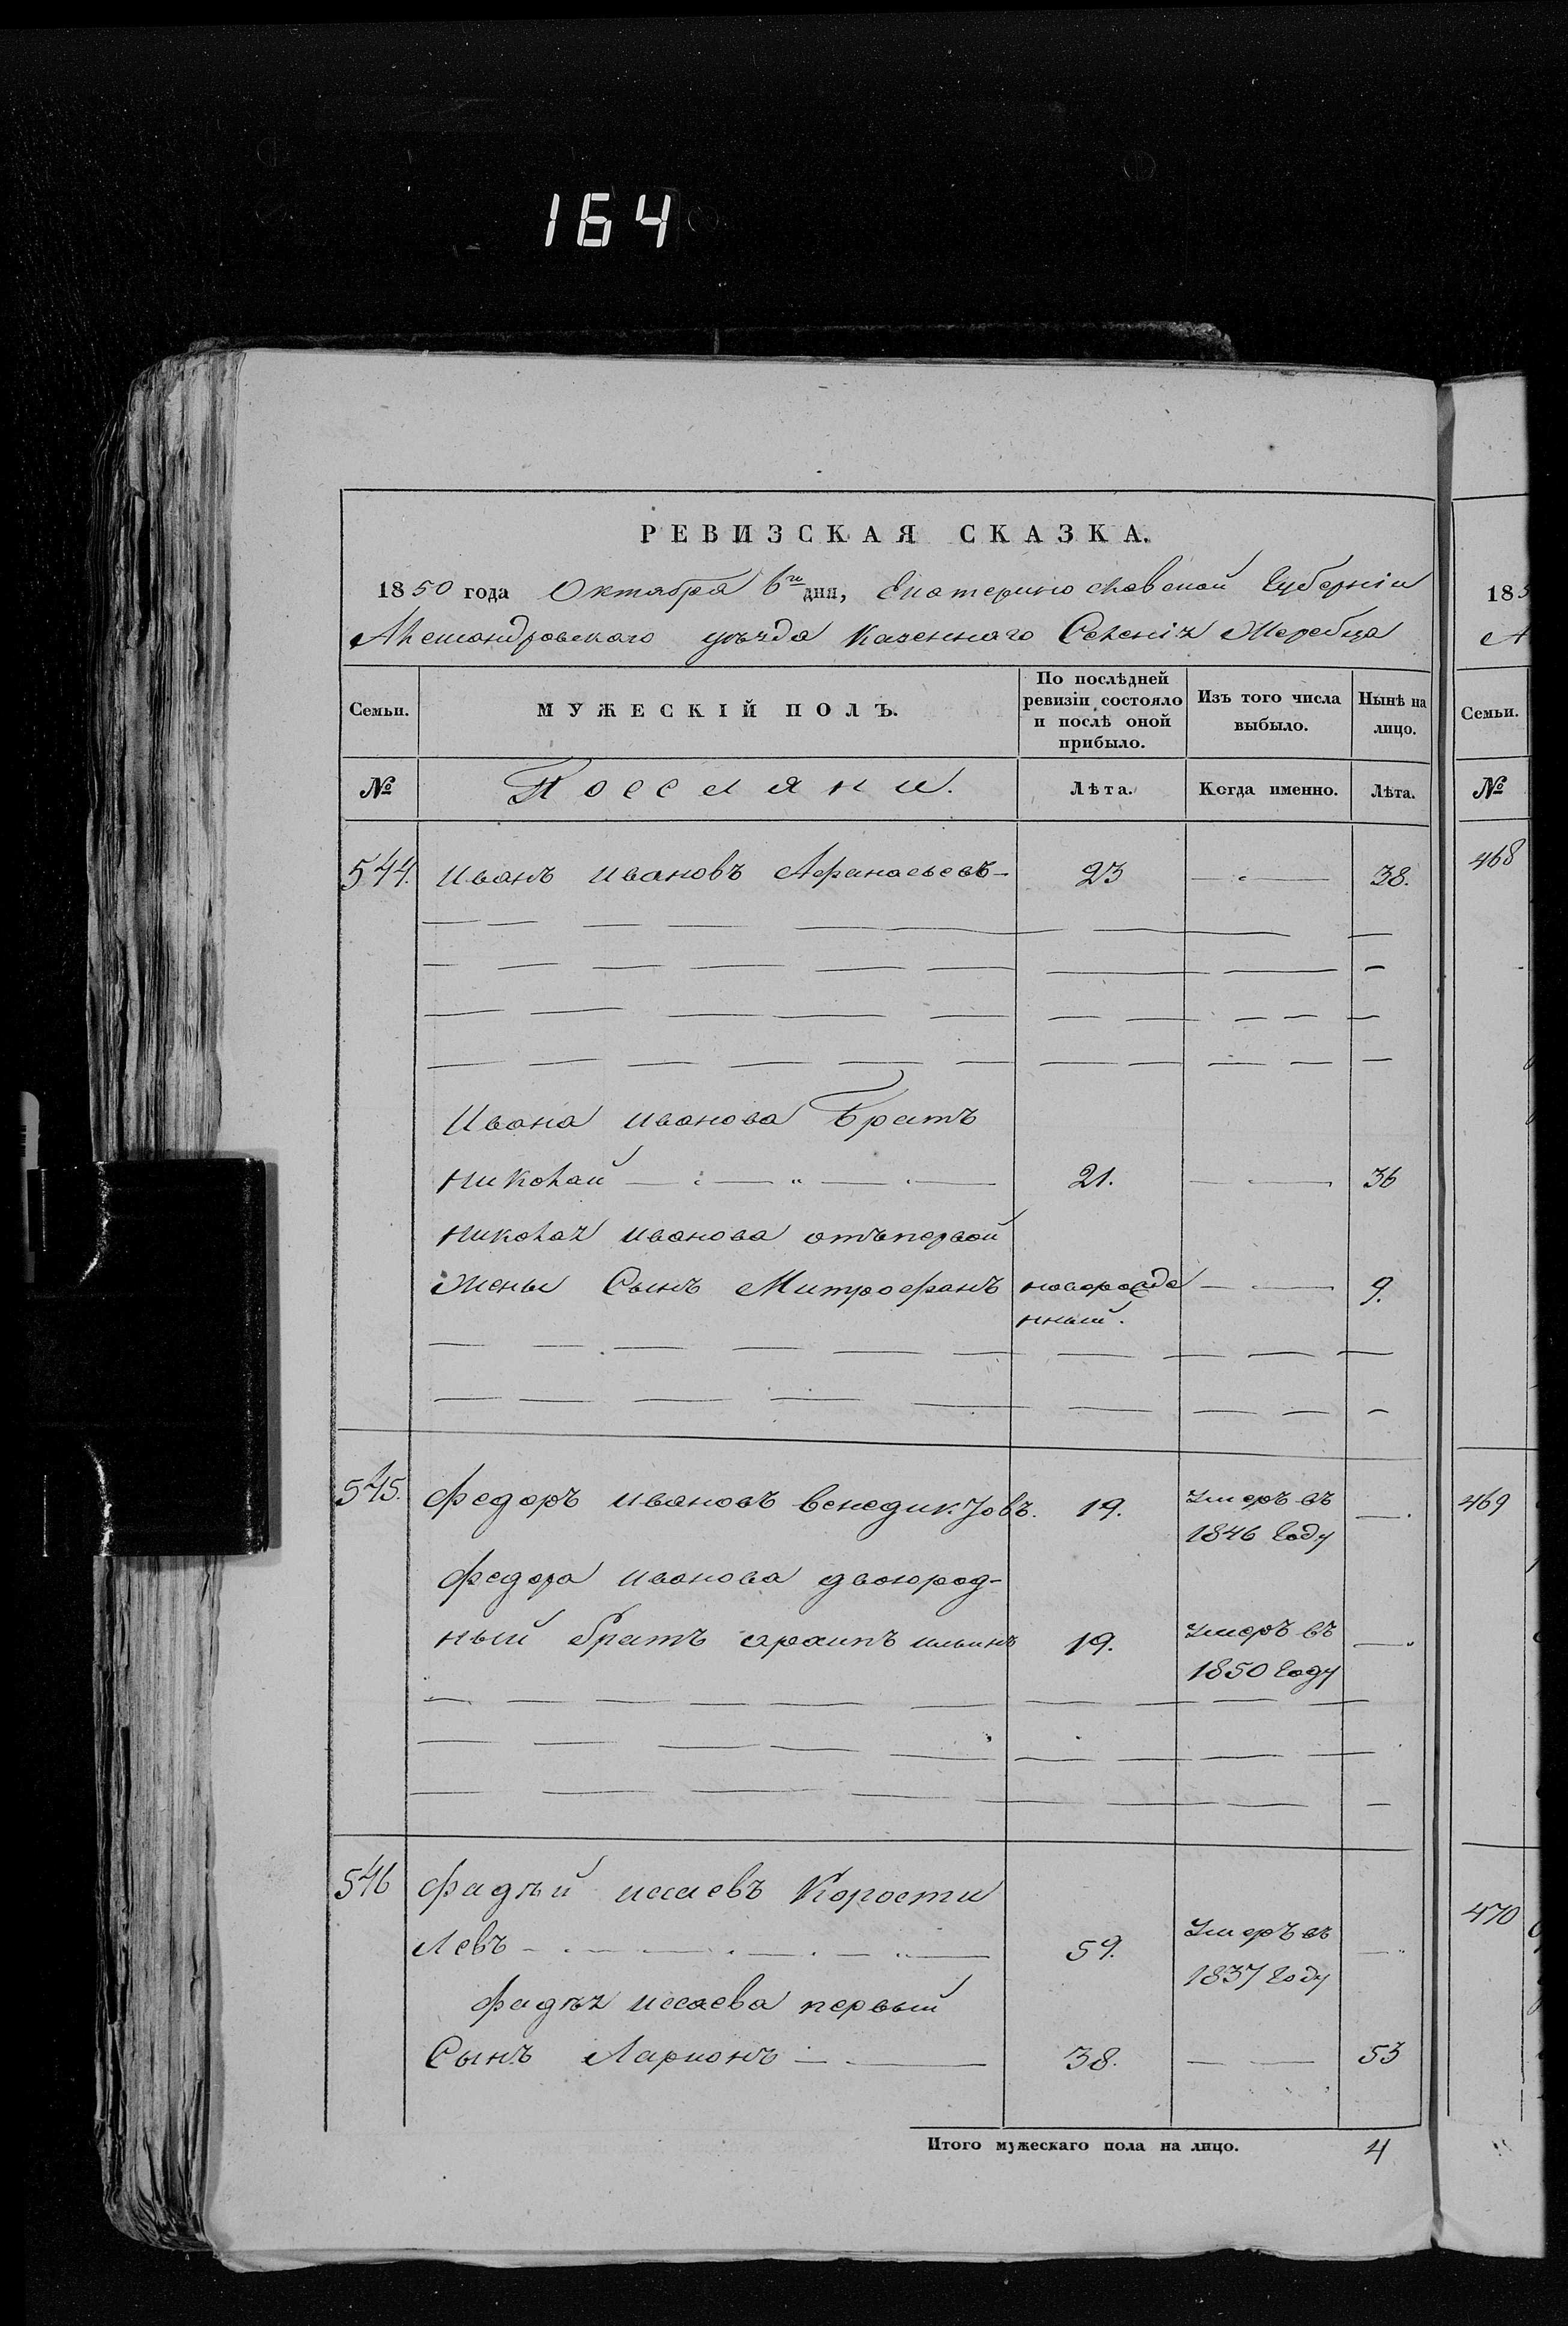 164
РЕВИЗСКАЯ СКАЗКА.
1850 года Октября 6го дня, Екатеринославской Губерніи
Александровскаго уѣзда Казеннаго Селенія Жеребца
Семьи. МУЖЕСКІЙ ПОЛЪ. По послѣдней ревизіи состояло и послѣ оной прибыло. Изъ того числа выбыло. Нынѣ на лицо.
№ Поселяни. Лѣта. Когда именно. Лѣта.
544. Иванъ Ивановъ Афанасьевъ 23 38.
Ивана Иванова Братъ
Николай 21. 36
Николая Иванова отъ первой
Жены Сынъ Митрофанъ новорожде 9.
нный.
545. Федоръ Ивановъ Венедиктовъ. 19. Умеръ въ
1846 Году
Федора Иванова двоюрод-
ный братъ архипъ ильинъ 19. Умеръ въ
1850 Году
546 Фадѣй исаевъ Корости
левъ 59. Умеръ въ
1837 Году
Фадѣя исаева первый
Сынъ Ларионъ 38. 53
Итого мужескаго пола на лицо. 4
185
А
Семьи.
№
468
469
470